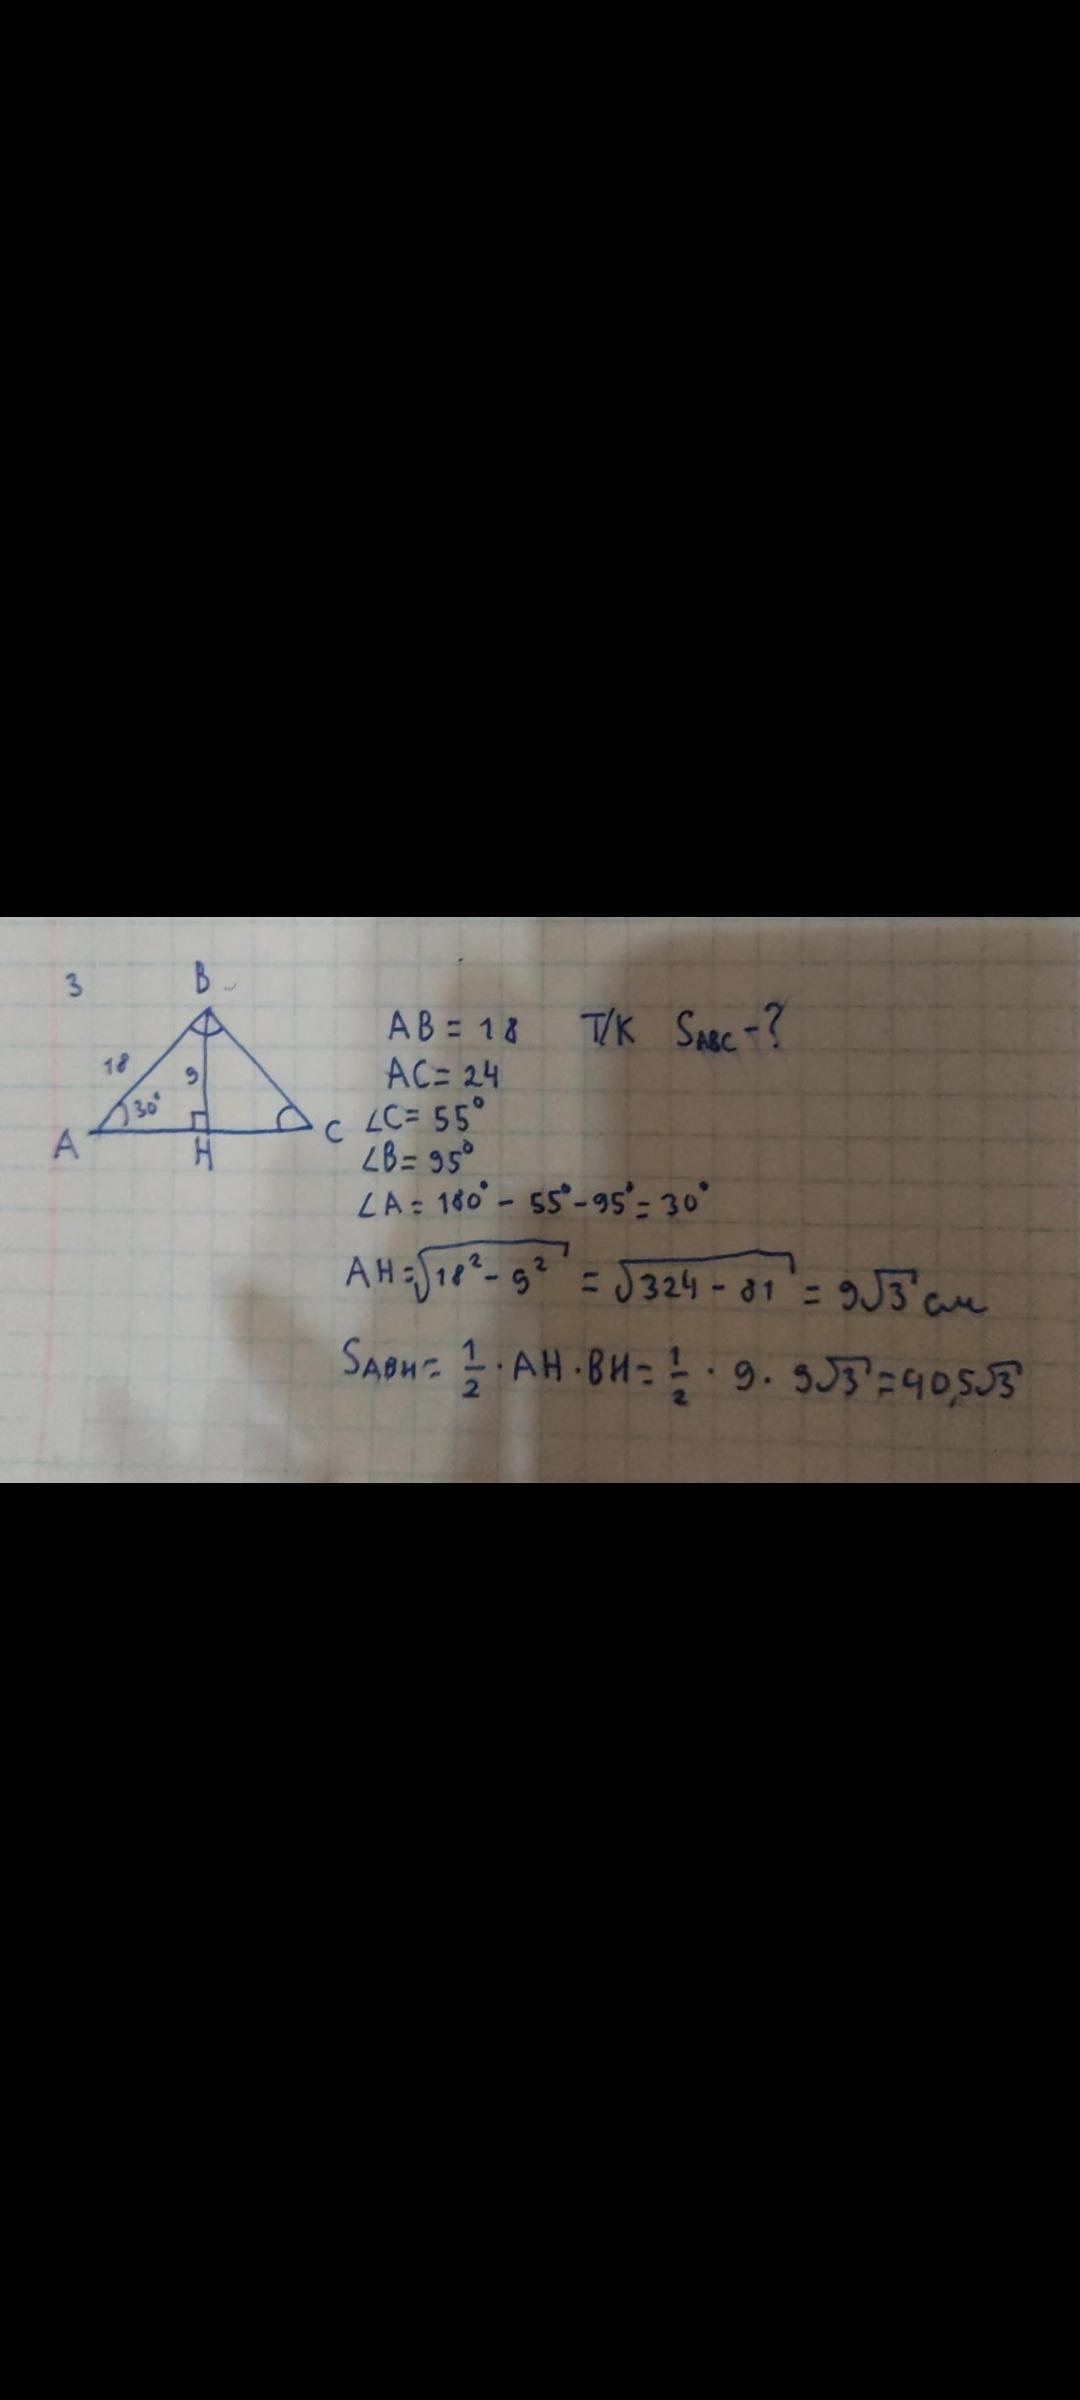 3
B
18
9
30°
A
H
C
AB = 18 Т/К SABC - ?
AC = 24
∠C = 55°
∠B = 95°
∠A = 180° - 55° - 95° = 30°
AH = √18² - 9² = √324 - 81 = 9√3 см
SABH = 1/2 · AH · BH = 1/2 · 9 · 9√3 = 40,5√3